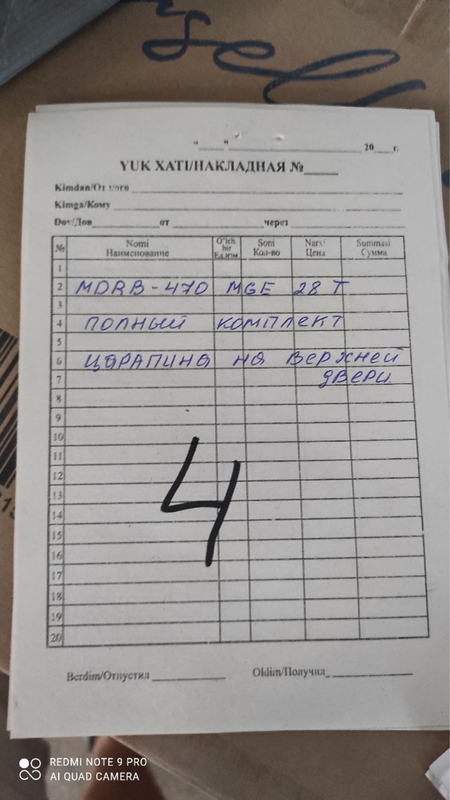 "____"____ 20___г.
YUK XATI/НАКЛАДНАЯ №____
Kimdan/От кого
Kimga/Кому
Dov/Дов____от____через
№ Nomi Наименование O'lch bir Ед.изм. Soni Кол-во Narxi Цена Summasi Сумма
1
2 MDRB-470 MGE 28 T
3
4 ПОЛНЫЙ КОМПЛЕКТ
5
6 ЦАРАПИНА НА ВЕРХНЕЙ
7 ДВЕРИ
8
9
10
11
12
13
14
15
16
17
18
19
20
4
Berdim/Отпустил____ Oldim/Получил____
REDMI NOTE 9 PRO
AI QUAD CAMERA